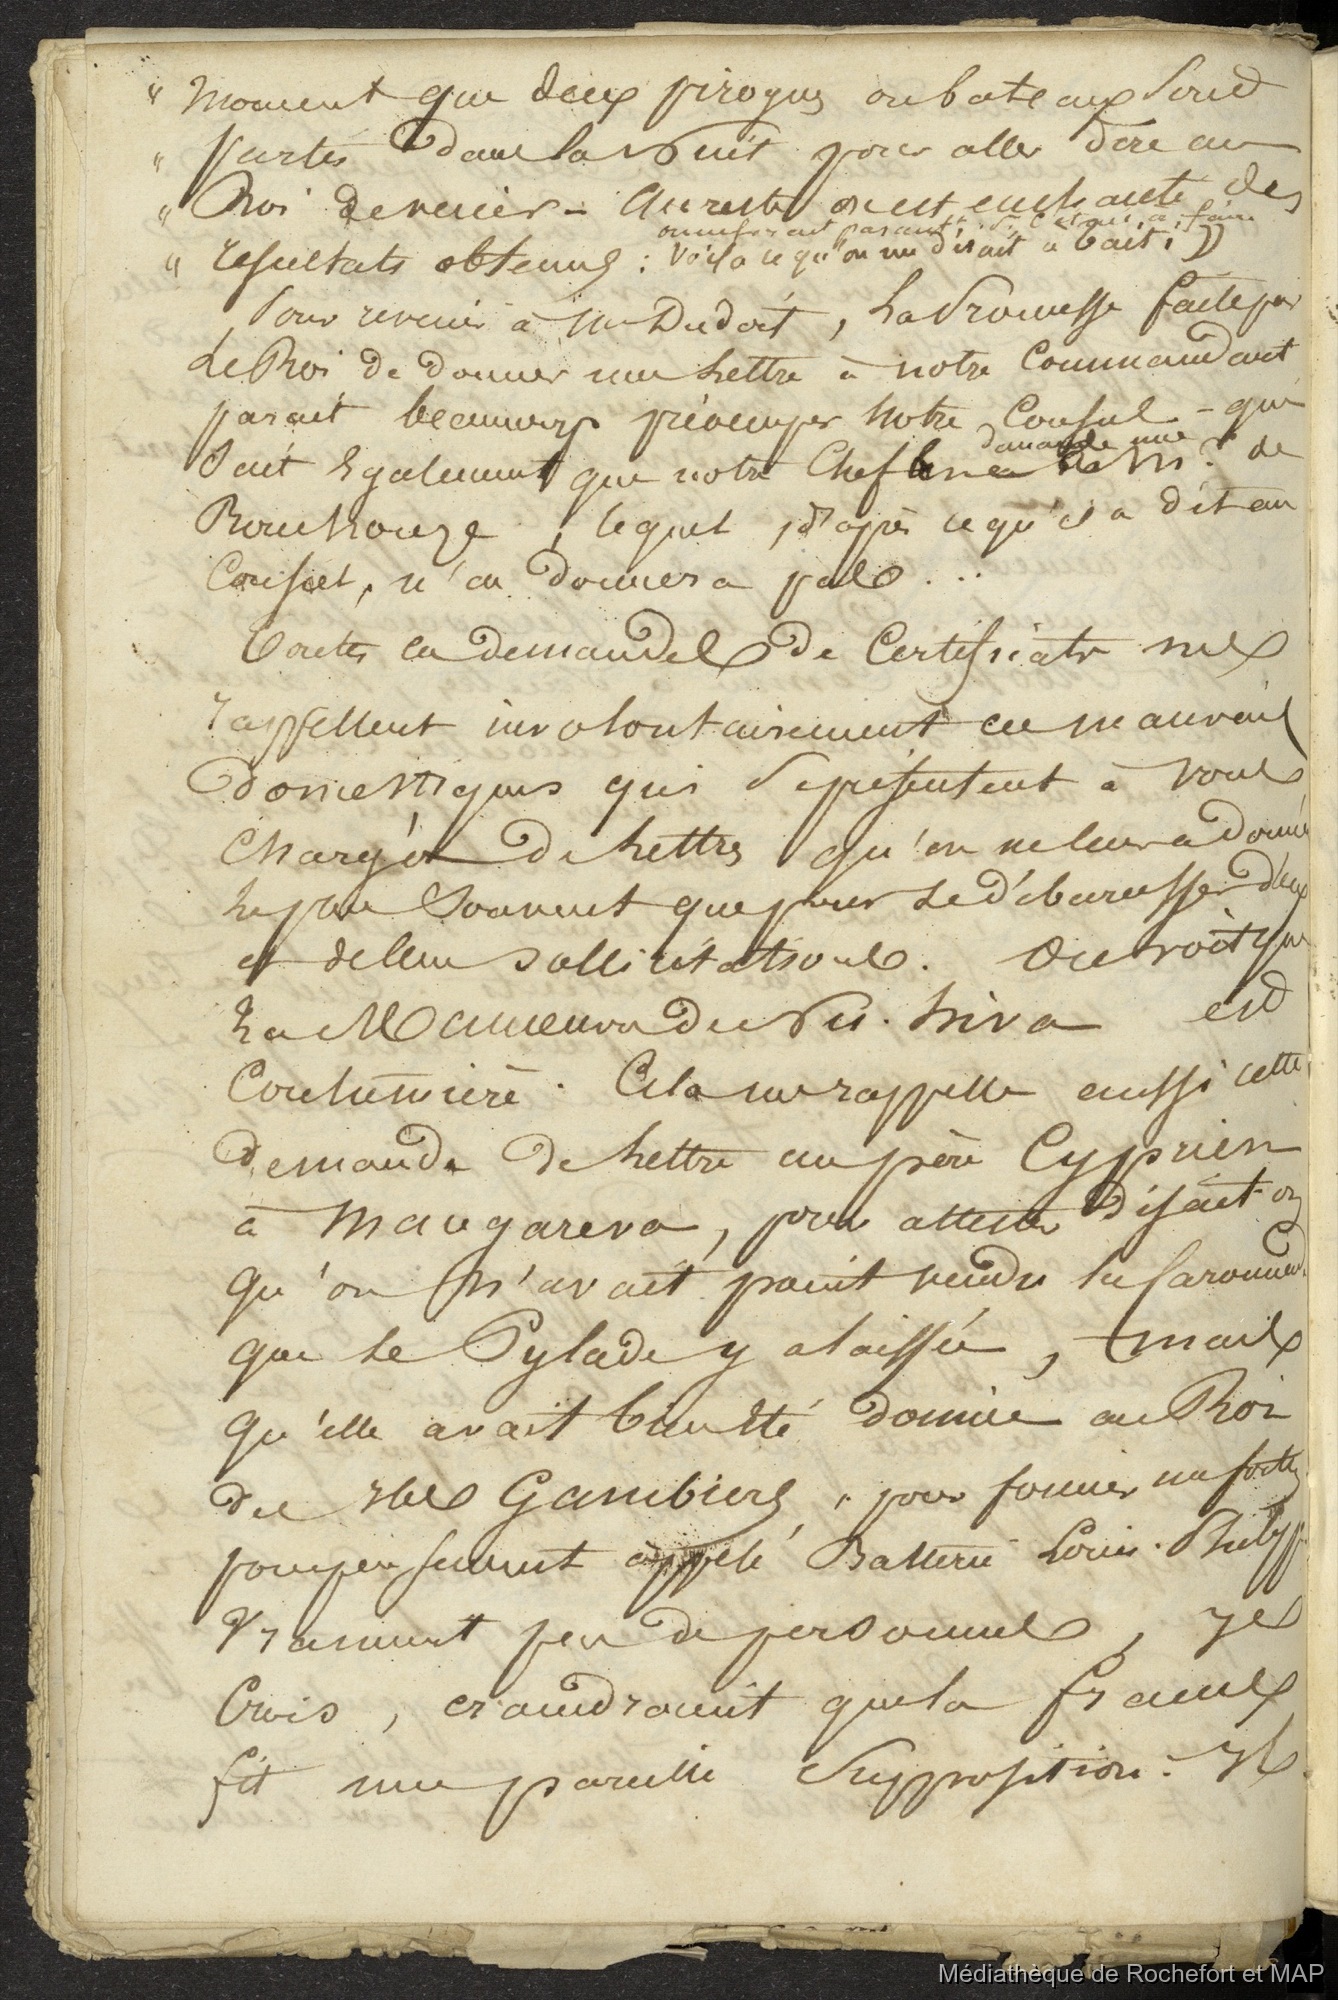 " Moment que deux pirogues ou bateaux sont
" partis dans la Nuit pour aller dire au
" Roi de venir – Au reste on est enchanté des
on ne ferait pas
" résultats obtenus : Voila ce qu'on me disait à Taiti »
Pour revenir à Mr Dudoit, La Promesse faite par
Le Roi de donner une Lettre à notre Commandant
parait beaucoup préoccuper Notre Consul – qui
demande une
Sait Egalement que notre Chef en a à Mr. de
Rouchouze, lequel, d'après ce qu'il a dit au
Consul, n'en donnera pas...
Toutes ces demandes de Certificats me
rappellent involontairement ces mauvais
domestiques qui se présentent à vous
Chargés de Lettres qu'on ne leur a donné
Le plus Souvent que pour se débarrasser d'eux
et de leurs sollicitations. On voit que
La Manœuvre de Nu-hiva est
Coutumière. Cela me rappelle aussi cette
demande de Lettre au père Cyprien
à Mangareva, pour attester disait-on
qu'on n'avait point vendu la Caronnade
que Le Pylade y a laissée, mais
qu'elle avait bien été donnée au Roi
des Iles Gambiers, pour former un fort
pompeusement appelé Batterie Louis-Philippe
Vraiment peu de personnes, je
Crois, craindraient que la France
fit une pareille Supposition. Il
Médiathèque de Rochefort et MAP